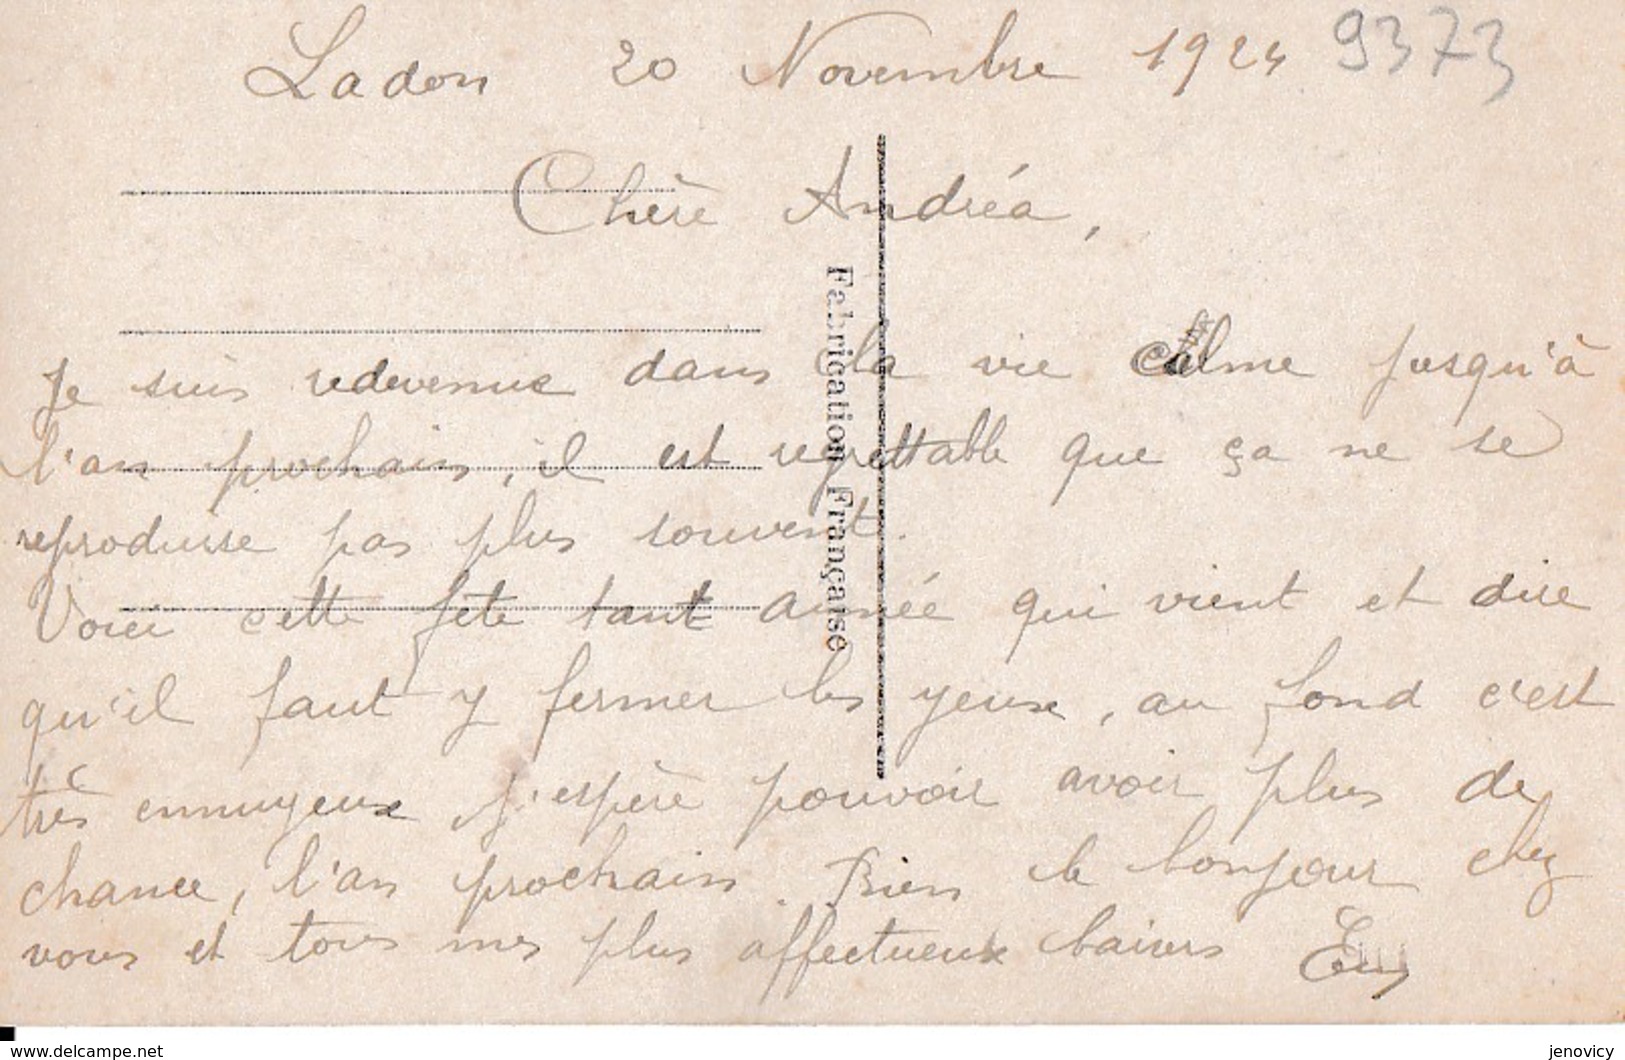 Ladon 20 Novembre 1924 9373
Chère Andréa,
Je suis redevenue dans la vie calme jusqu'à
l'an prochain, il est regrettable que ça ne se
reproduisse pas plus souvent.
Voici cette fête tant année qui vient et dire
qu'il faut y fermer les yeux, au fond c'est
très ennuyeux j'espère pouvoir avoir plus de
chance, l'an prochain. Bien le bonjour chez
vous et tous mes plus affectueux baisers
Fabrication Française
www.delcampe.net
jenovicy